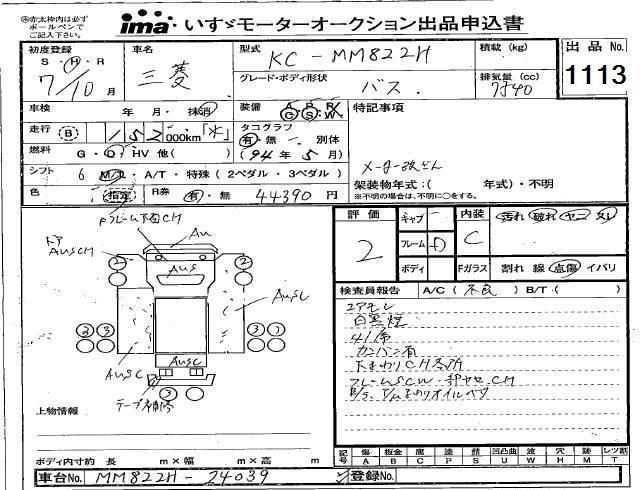 ㊟赤太枠内は必ず
ボールペンで
ご記入下さい。
ima® いすゞモーターオークション出品申込書
初度登録
S・H・R
7/10月
車名
三菱
型式
KC-MM822H
積載 (kg)
グレード・ボディ形状
バス.
排気量 (cc)
7540
出品No.
1113
車検 年 月・抹消
装備 A P R/
G S W
特記事項
走行 B 152,000km「水」
タコグラフ
有・無 別体
(94年5月)
燃料 G・D・HV 他( )
メーター改ざん
シフト 6 M/T・A/T・特殊(2ペダル・3ペダル)
架装物年式:( 年式)・不明
※不明の場合は、不明に○をする。
色 指定 R券 有・無 44390円
評価 2
キャブ -
フレーム D
ボディ
内装 C
汚れ 破れ ヤニ スレ
Fガラス 割れ 線 点傷 イバリ
FフレームCH
Au
ドア
AUSCH
AUS
2 2
AUSC
3 3
AUSC
AUSC
テープ補修
3
検査員報告 A/C(不良) B/T( )
エアモレ
白黒煙
41席
カンバン有
下まわりCH
フレームSCW CH
オイルベタ
上物情報
ボディ内寸約 長 m×幅 m×高 m
記号 傷A 板金B 腐C 塗P 錆S 凹凸曲U 波W 穴H 跡M レツ割T
車台No. MM822H-24039
登録No.